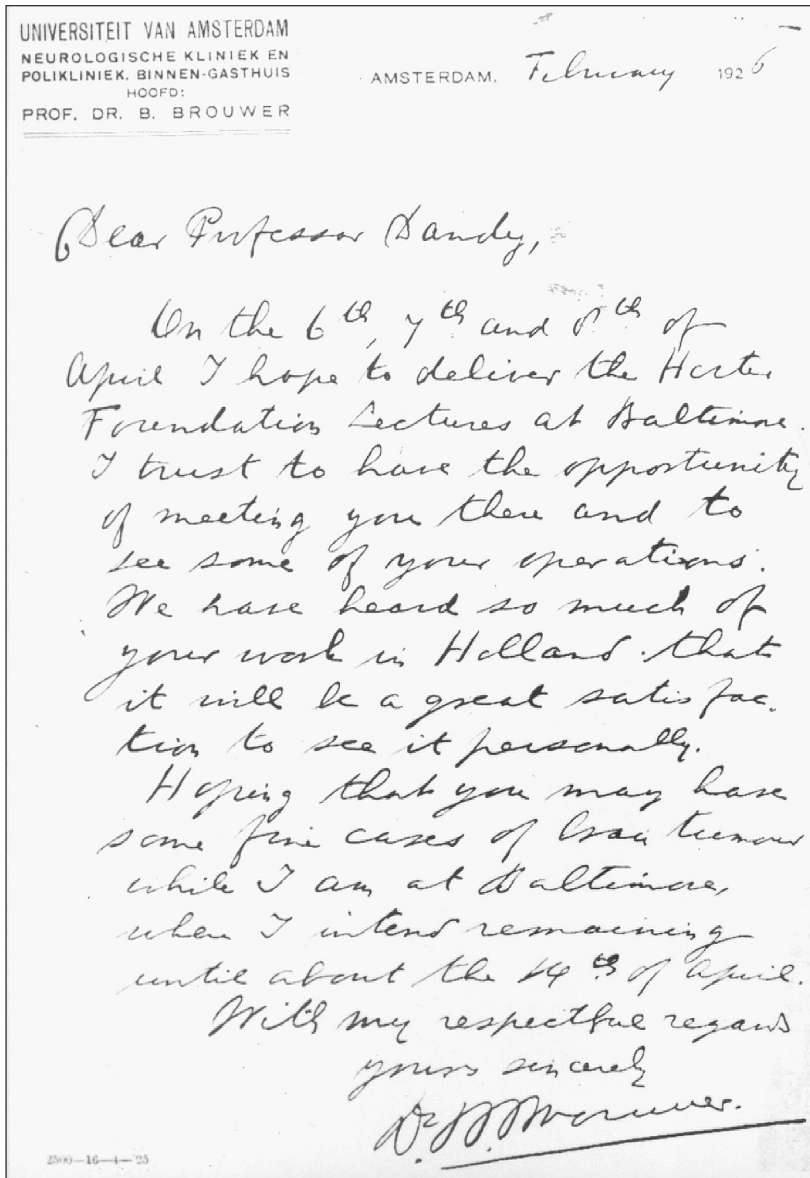 UNIVERSITEIT VAN AMSTERDAM
NEUROLOGISCHE KLINIEK EN
POLIKLINIEK, BINNEN-GASTHUIS
HOOFD:
PROF. DR. B. BROUWER
AMSTERDAM, February 1926
Dear Professor Dandy,
On the 6th, 7th and 8th of
April I hope to deliver the Herter
Foundation Lectures at Baltimore.
I trust to have the opportunity
of meeting you there and to
see some of your operations.
We have heard so much of
your work in Holland that
it will be a great satisfac-
tion to see it personally.
Hoping that you may have
some fine cases of brain tumour
while I am at Baltimore,
where I intend remaining
until about the 14th of April.
With my respectful regards
yours sincerely
Dr B. Brouwer.
2500-16-4-'25